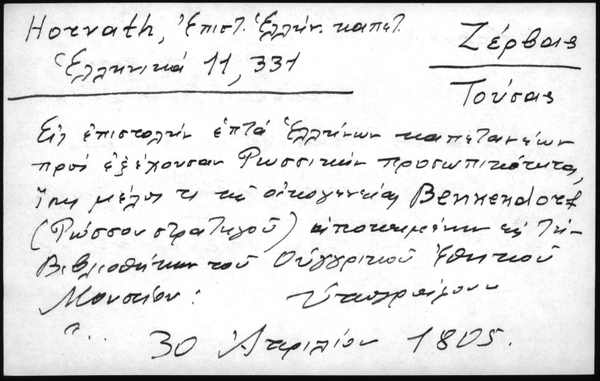 Horvath, Ἐπιστ. Ἑλλήν. καπετ.
Ἑλληνικά 11, 331
Ζέρβας
Τούσας
Εἰς ἐπιστολὴν ἑπτά Ἑλλήνων καπεταναίων
πρός ἐξέχουσαν Ρωσσικὴν προσωπικότητα,
ἴσως μέλος τι τῆς οἰκογενείας Benkendorf
(Ρώσσου στρατηγοῦ) ἀποκειμένην εἰς τὴν
Βιβλιοθήκην τοῦ Οὑγγρικοῦ Ἐθνικοῦ
Μουσείου: ὑπογράφουν
"... 30 Ἀπριλίου 1805.